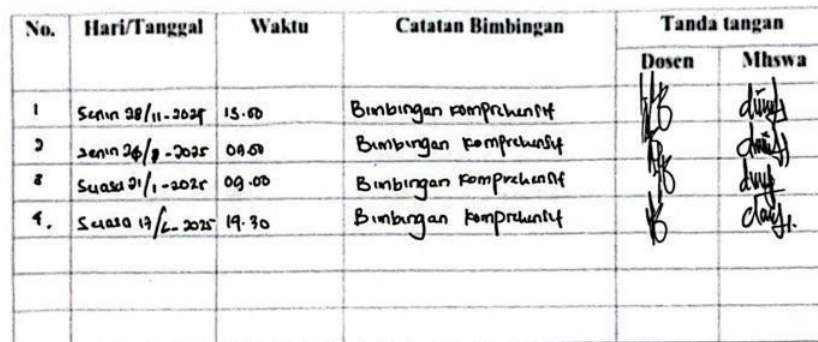 No. Hari/Tanggal Waktu Catatan Bimbingan Tanda tangan
Dosen Mhswa
1 Senin 28/11-2024 15.00 Bimbingan komprehensif
2 Senin 2025 09.00 Bimbingan komprehensif
3 Selasa 21/1-2025 09.00 Bimbingan komprehensif
4. Selasa 2025 19.30 Bimbingan komprehensif